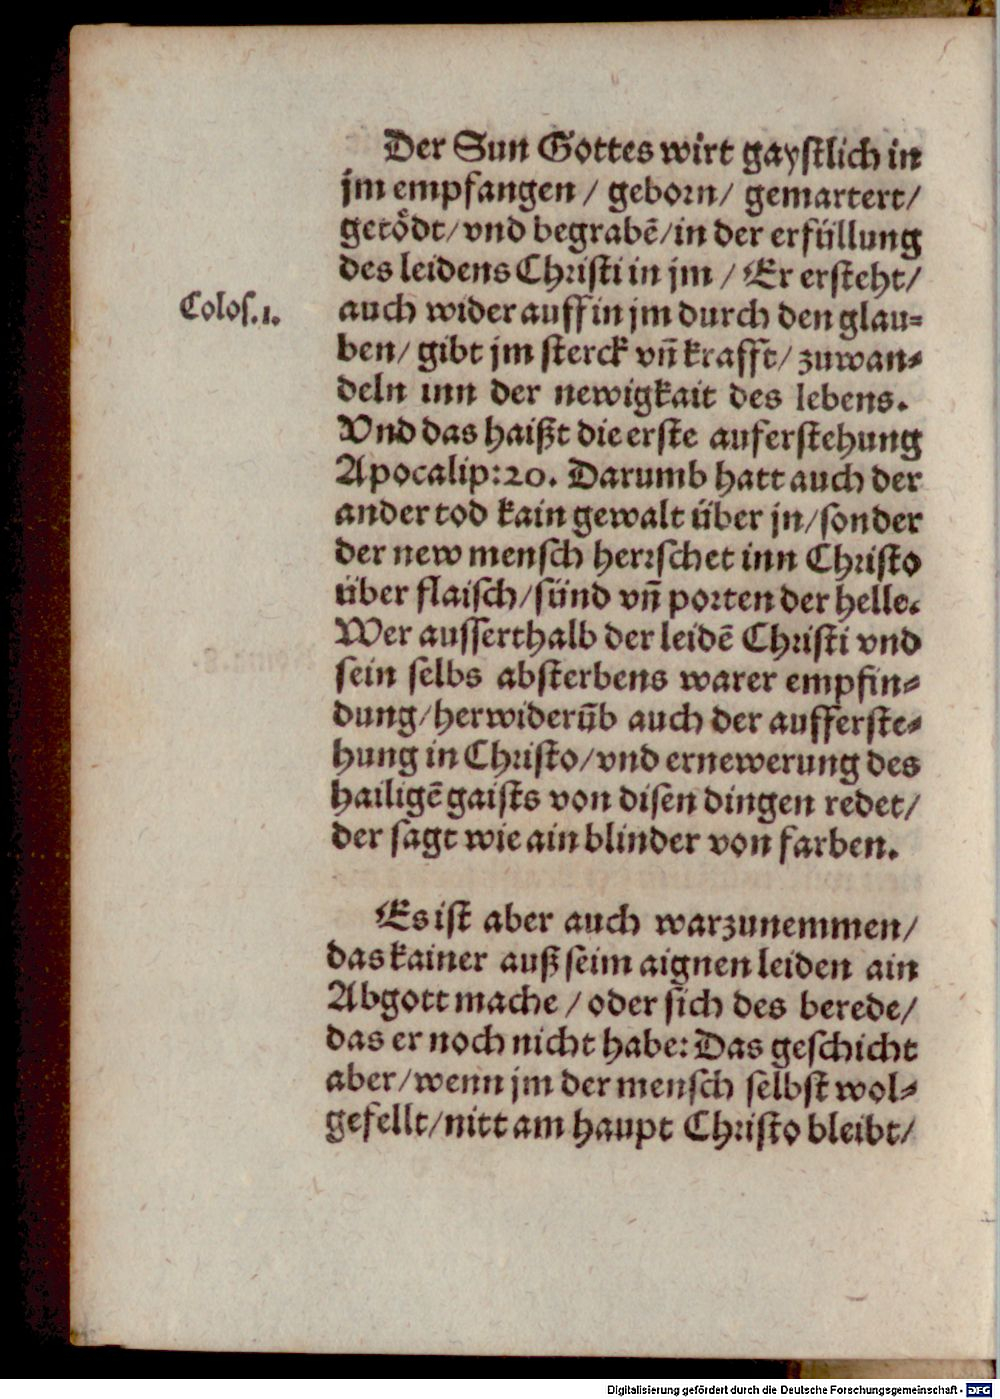 Der Sun Gottes wirt gaystlich in
jm empfangen / geborn / gemartert /
getödt / vnd begrabē / in der erfüllung
des leidens Christi in jm / Er ersteht /
Colos. 1.
auch wider auff in jm durch den glau-
ben / gibt jm sterck vñ krafft / zuwan-
deln inn der newigkait des lebens.
Vnd das haißt die erste auferstehung
Apocalip: 20. Darumb hatt auch der
ander tod kain gewalt über jn / sonder
der new mensch herrschet inn Christo
über flaisch / sünd vñ porten der helle.
Wer ausserthalb der leidē Christi vnd
sein selbs absterbens warer empfin-
dung / herwiderūb auch der aufferste-
hung in Christo / vnd ernewerung des
hailigē gaists von disen dingen redet /
der sagt wie ain blinder von farben.
Es ist aber auch warzunemmen /
das kainer auß seim aignen leiden ain
Abgott mache / oder sich des berede /
das er noch nicht habe: Das geschicht
aber / wenn jm der mensch selbst wol-
gefellt / nitt am haupt Christo bleibt /
Digitalisierung gefördert durch die Deutsche Forschungsgemeinschaft - DFG